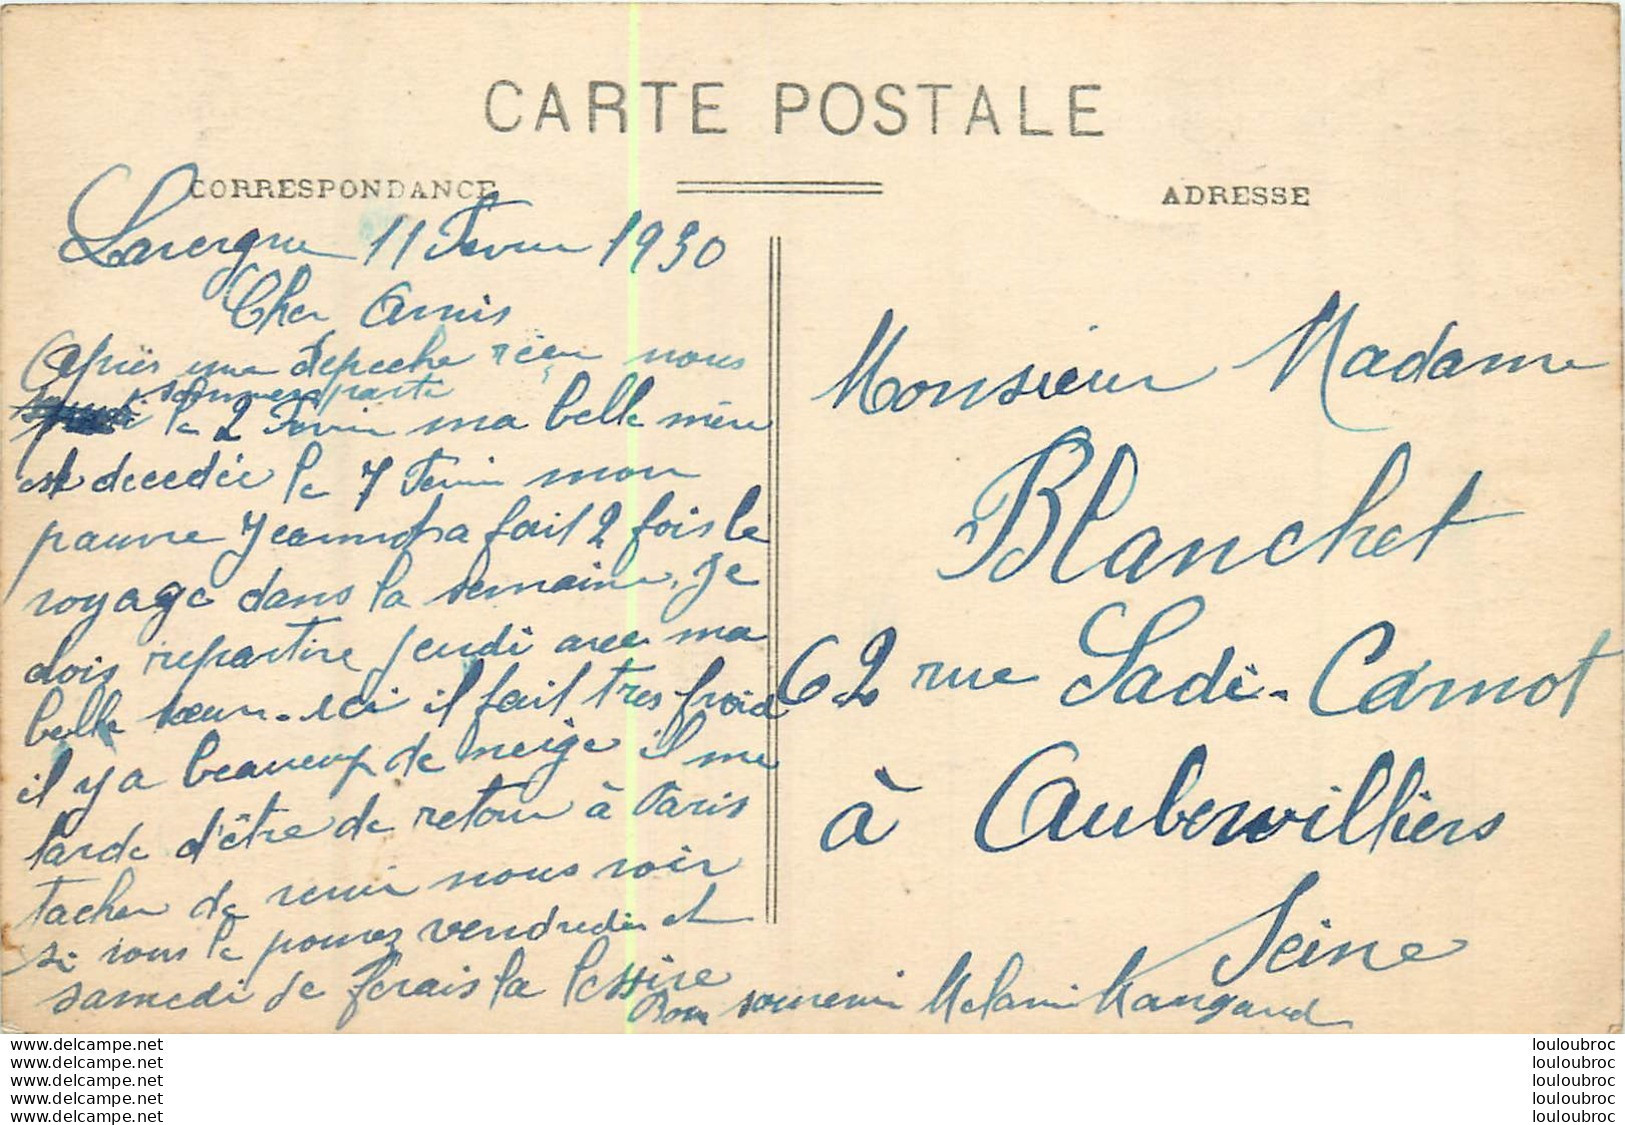 CARTE POSTALE
CORRESPONDANCE
ADRESSE
Lavergne 11 Fevrier 1930
Cher Amis
Après une depeche nous
sommes parti
le 2 Fevrier ma belle mère
est decedée le 7 Fevrier mon
pauvre fait 2 fois le
voyage dans la semaine. Je
dois repartire jeudi avec ma
belle sœur. ici il fait tres froid
il y a beaucoup de neige il me
tarde d'être de retour à Paris
tacher de venir nous voir
si vous le pouvez vendredi et
samedi je ferais la lessive
Bon souvenir Melanie
Monsieur Madame
Blanchet
62 rue Sadi-Carnot
à Aubervilliers
Seine
www.delcampe.net
www.delcampe.net
www.delcampe.net
www.delcampe.net
www.delcampe.net
louloubroc
louloubroc
louloubroc
louloubroc
louloubroc